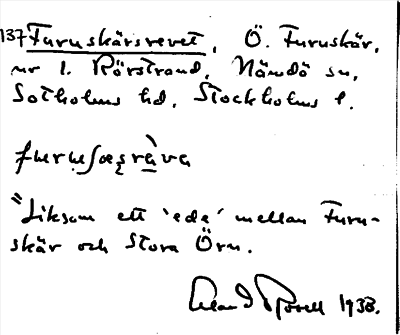 137 Furuskärsrevet, Ö. Furuskär,
nr 1. Rörstrand, Nämdö sn,
Sotholms hd, Stockholms l.
"Liksom ett 'ede' mellan Furu-
skär och Stora Örn.
1933.